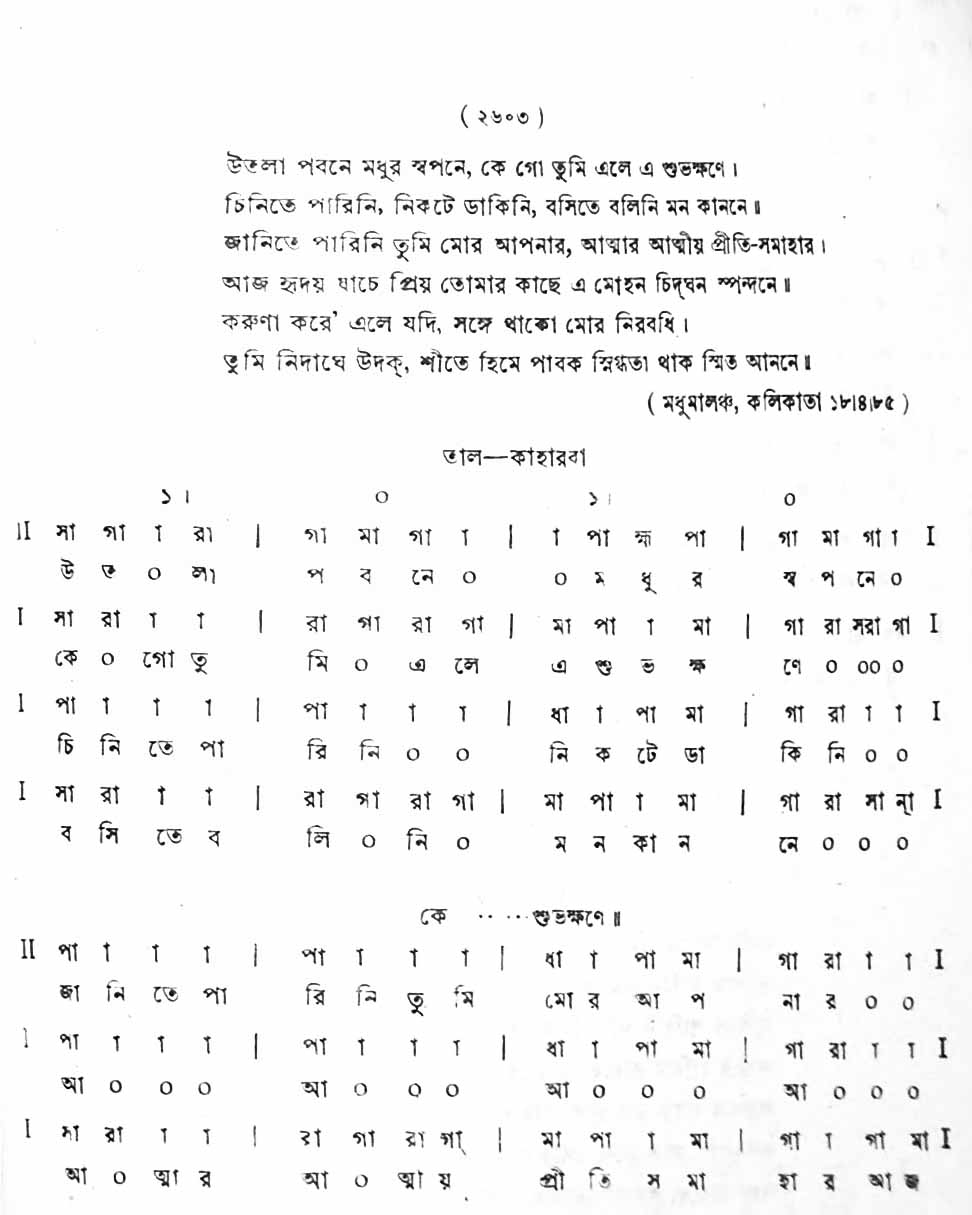 ( ২৬০৩ )
উতলা পবনে মধুর স্বপনে, কে গো তুমি এলে এ শুভক্ষণে।
চিনিতে পারিনি, নিকটে ডাকিনি, বসিতে বলিনি মন কাননে॥
জানিতে পারিনি তুমি মোর আপনার, আত্মার আত্মীয় প্রীতি-সমাহার।
আজ হৃদয় যাচে প্রিয় তোমার কাছে এ মোহন চিদ্‌ঘন স্পন্দনে॥
করুণা করে' এলে যদি, সঙ্গে থাকো মোর নিরবধি।
তুমি নিদাঘে উদক্, শীতে হিমে পাবক স্নিগ্ধতা থাক স্মিত আননে॥
( মধুমালঞ্চ, কলিকাতা ১৮।৪।৮৫ )
তাল—কাহারবা
১। ০ ১। ০
II সা গা া রা | গা মা গা া | া পা হ্ম পা | গা মা গা া I
উ ত ০ লা প ব নে ০ ০ ম ধু র স্ব প নে ০
I সা রা া া | রা গা রা গা | মা পা া মা | গা রা সরা গা I
কে ০ গো তু মি ০ এ লে এ শু ভ ক্ষ ণে ০ ০০ ০
I পা া া া | পা া া া | ধা া পা মা | গা রা া া I
চি নি তে পা রি নি ০ ০ নি ক টে ডা কি নি ০ ০
I সা রা া া | রা গা রা গা | মা পা া মা | গা রা সা ন্া I
ব সি তে ব লি ০ নি ০ ম ন কা ন নে ০ ০ ০
কে ·· ··· শুভক্ষণে॥
II পা া া া | পা া া া | ধা া পা মা | গা রা া া I
জা নি তে পা রি নি তু মি মো র আ প না র ০ ০
I পা া া া | পা া া া | ধা া পা মা | গা রা া া I
আ ০ ০ ০ আ ০ ০ ০ আ ০ ০ ০ আ ০ ০ ০
I সা রা া া | রা গা রা গা | মা পা া মা | গা া গা মা I
আ ০ ত্মা র আ ০ ত্মী য় প্রী তি স মা হা র আ জ